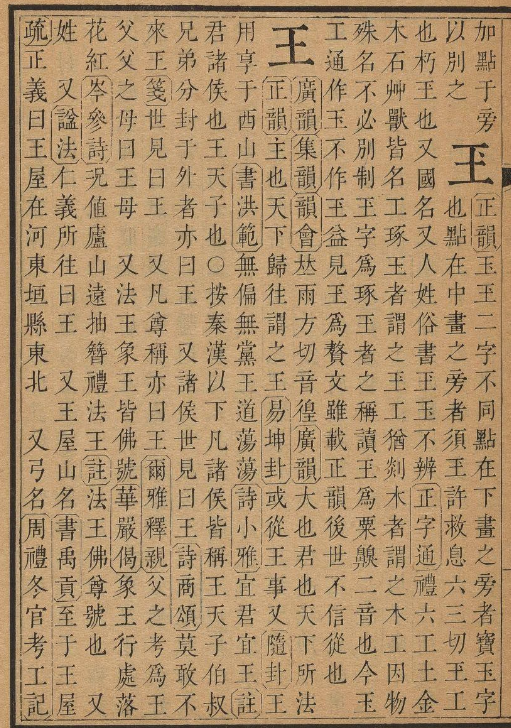 加點于旁
以別之
玊
正韻玉玊二字不同點在下畫之旁者寶玉字
也點在中畫之旁者須玉許救息六三切玊工
也朽玉也又國名又人姓俗書王玉不辨正字通禮六工土金
木石艸獸皆名工琢玉者謂之玉工猶剡木者謂之木工因物
殊名不必別制玊字爲琢玉者之稱讀玊爲粟齅二音也今玉
工通作玉不作玊益見玊爲贅文雖載正韻後世不信從也
王
廣韻集韻韻會𠀤雨方切音徨廣韻大也君也天下所法
正韻主也天下歸往謂之王易坤卦或從王事又隨卦王
用享于西山書洪範無偏無黨王道蕩蕩詩小雅宜君宜王註
君諸侯也王天子也○按秦漢以下凡諸侯皆稱王天子伯叔
兄弟分封于外者亦曰王 又諸侯世見曰王詩商頌莫敢不
來王箋世見曰王 又凡尊稱亦曰王爾雅釋親父之考爲王
父父之母曰王母 又法王象王皆佛號華嚴偈象王行處落
花紅岑參詩況值廬山遠抽簪禮法王註法王佛尊號也 又
姓 又諡法仁義所往曰王 又王屋山名書禹貢至于王屋
疏正義曰王屋在河東垣縣東北 又弓名周禮冬官考工記